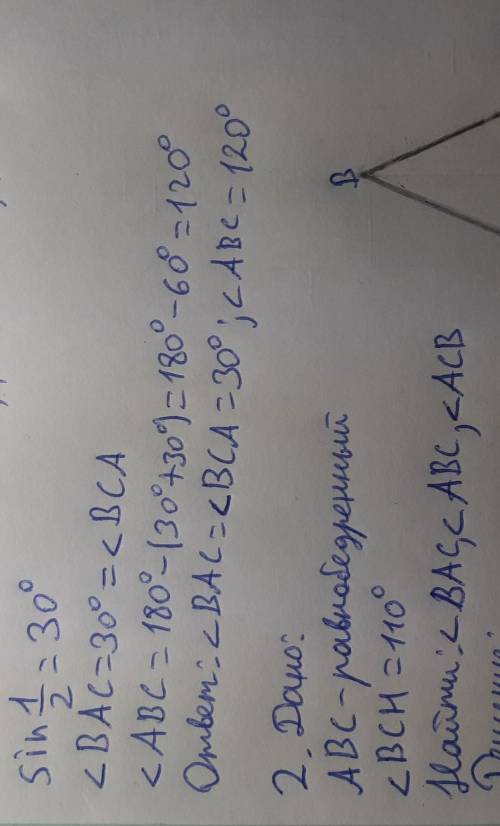 sin 1/2 = 30°
<BAC=30°=<BCA
<ABC=180°-(30°+30°)=180°-60°=120°
Ответ: <BAC=<BCA=30°; <ABC=120°
2. Дано:
ABC-равнобедренный
<BCH=110°
Найти: <BAC, <ABC, <ACB
B